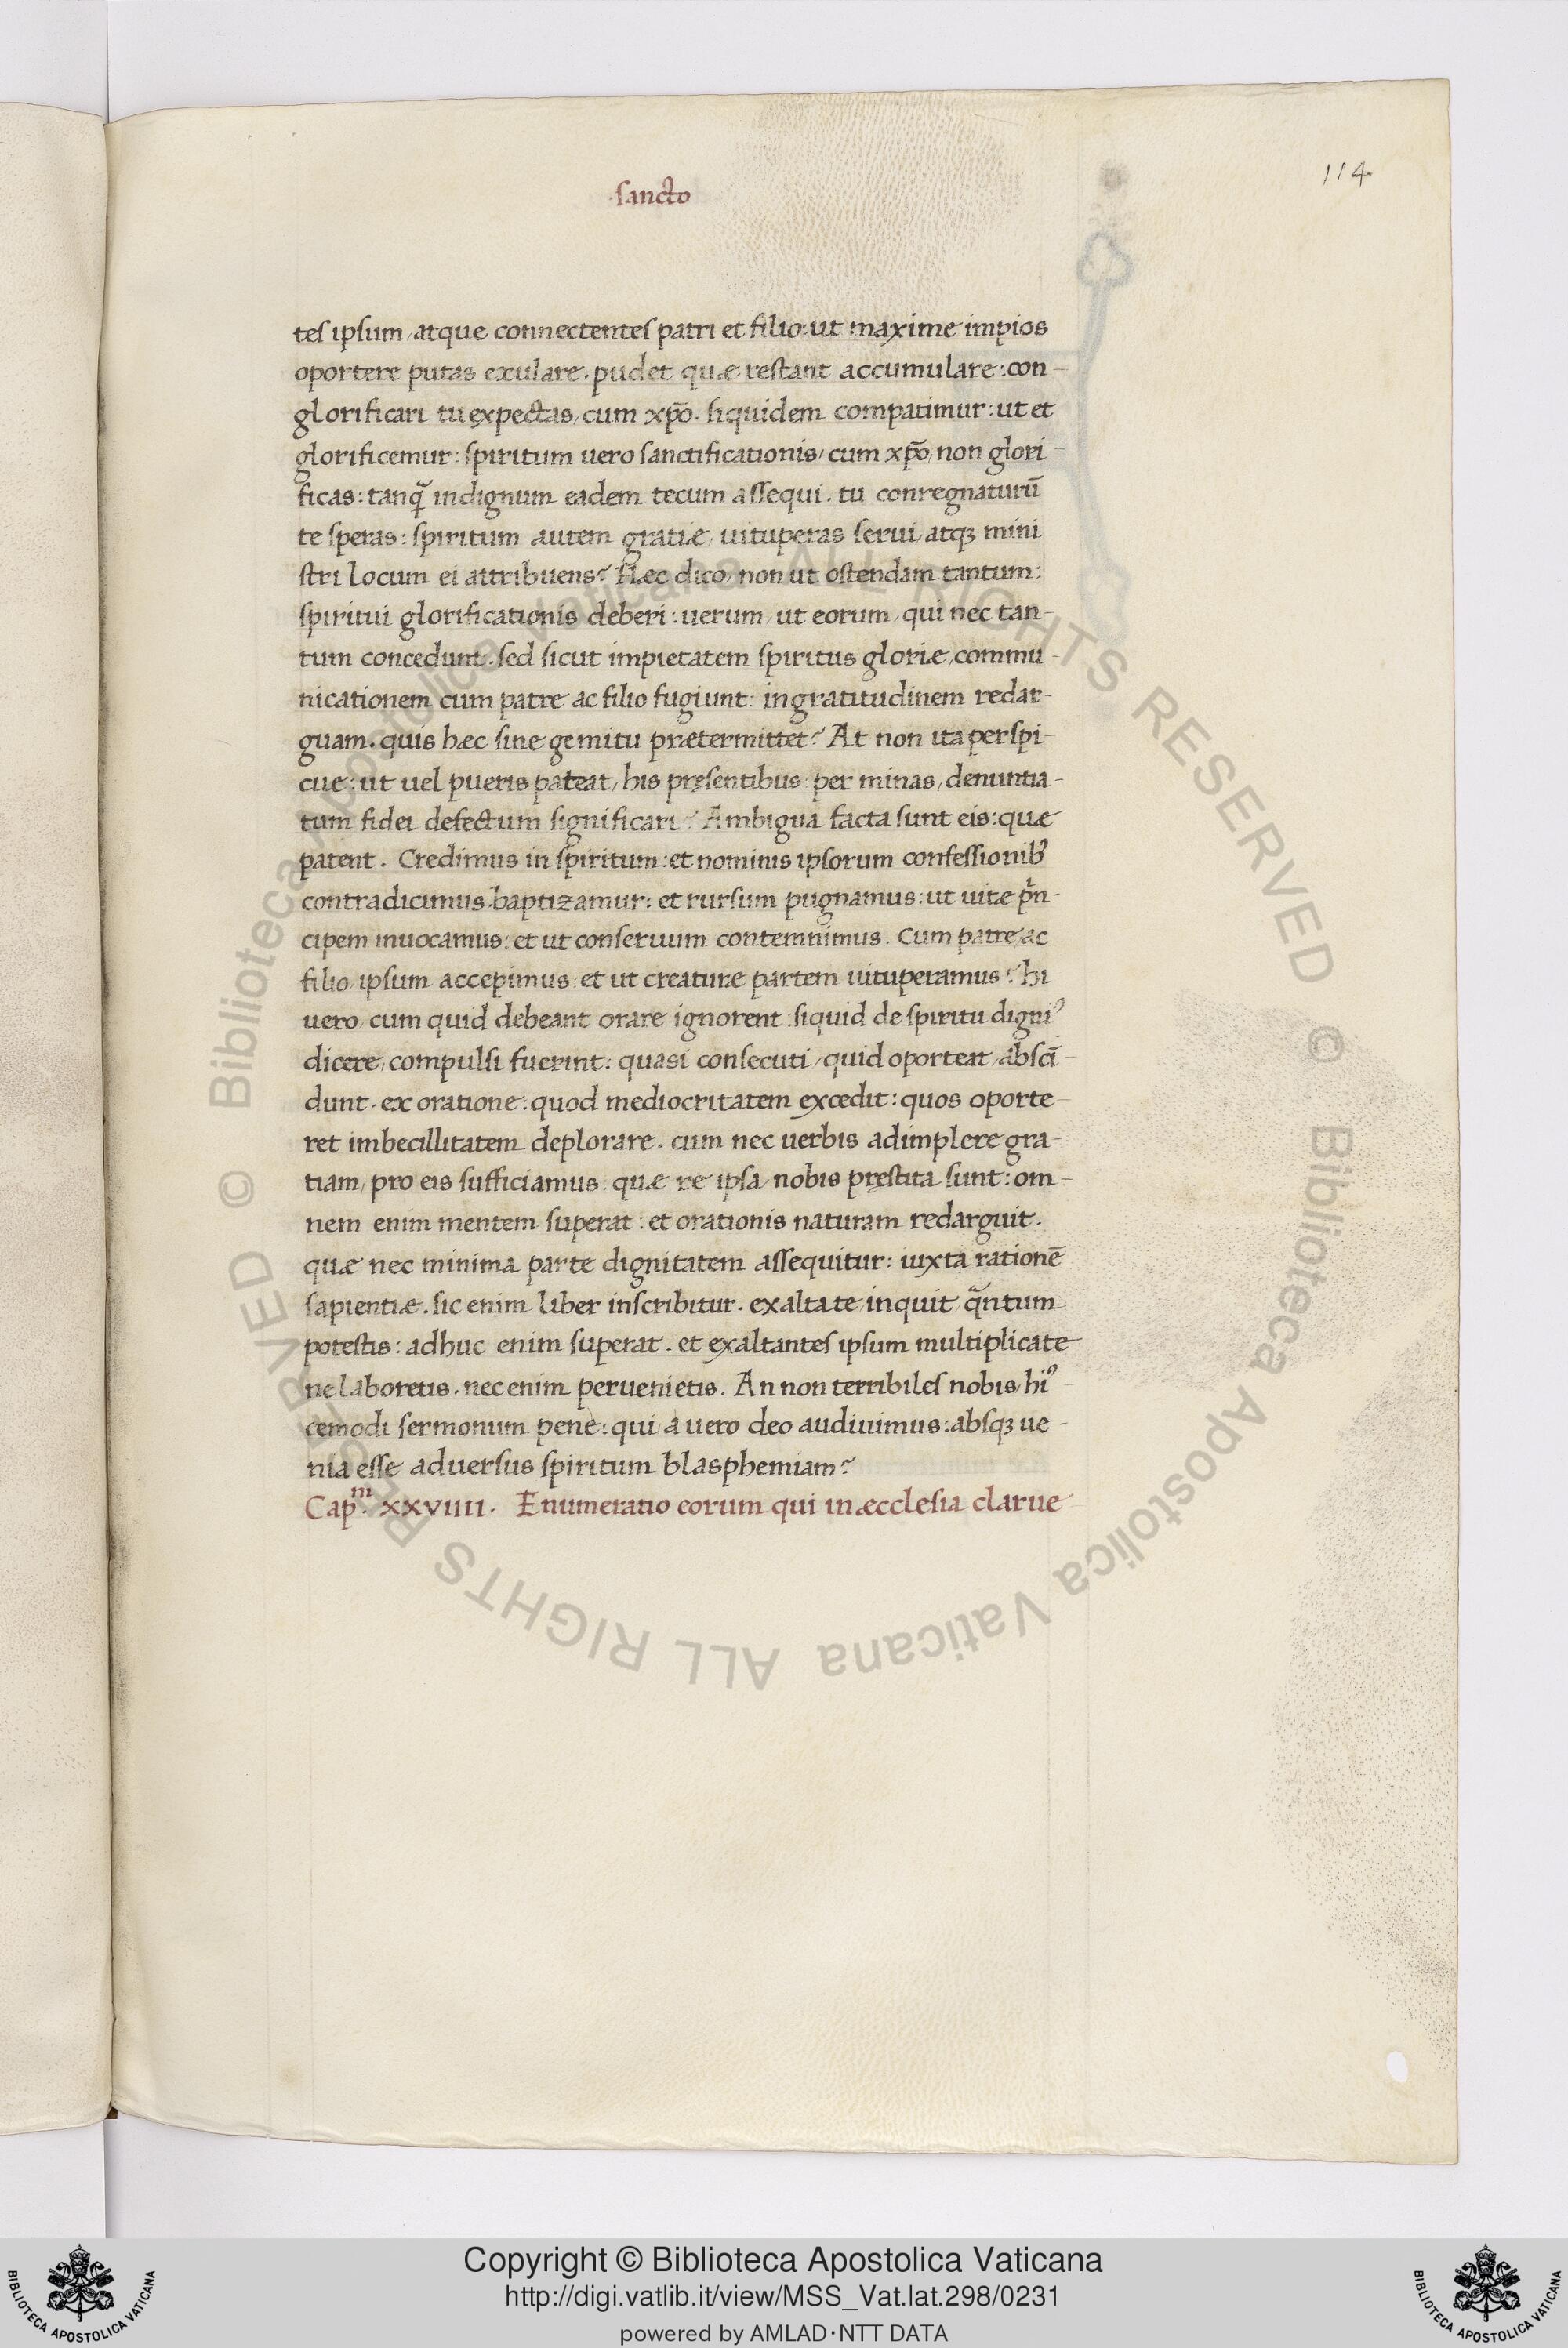 114
sancto
tes ipsum, atque connectentes patri et filio: ut maxime impios
oportere putas exulare. pudet quæ restant accumulare: con-
glorificari tu expectas, cum xp̄o. siquidem compatimur: ut et
glorificemur: spiritum uero sanctificationis, cum xp̄o, non glori-
ficas: tanq̃ indignum eadem tecum assequi. tu conregnaturū
te speras: spiritum autem gratiæ, uituperas serui, atqꝫ mini
stri locum ei attribuens? Hæc dico, non ut ostendam tantum:
spiritui glorificationis deberi: uerum, ut eorum, qui nec tan-
tum concedunt. sed sicut impietatem spiritus gloriæ, commu-
nicationem cum patre ac filio fugiunt: ingratitudinem redar-
guam. quis hæc sine gemitu prætermittet? At non ita perspi-
cue: ut uel pueris pateat, his pręsentibus per minas, denuntia-
tum fidei defectum significari? Ambigua facta sunt eis: quæ
patent. Credimus in spiritum: et nominis ipsorum confessionib᾽
contradicimus. baptizamur: et rursum pugnamus: ut uitæ p̃n-
cipem inuocamus: et ut conseruum contemnimus. Cum patre, ac
filio, ipsum accepimus: et ut creaturæ partem uituperamus? hi
uero, cum quid debeant orare ignorent: siquid de spiritu digniꝰ
dicere, compulsi fuerint: quasi consecuti, quid oporteat, absci̅-
dunt. ex oratione: quod mediocritatem excedit: quos oporte-
ret imbecillitatem deplorare. cum nec uerbis adimplere gra-
tiam, pro eis sufficiamus: quæ re ipsa, nobis pręstita sunt: om-
nem enim mentem superat: et orationis naturam redarguit.
quæ nec minima parte dignitatem assequitur: iuxta rationē
sapientiæ. sic enim liber inscribitur. exaltate, inquit, q̃ntum
potestis: adhuc enim superat. et exaltantes ipsum multiplicate
ne laboretis. nec enim peruenietis. An non terribiles nobis, hiꝰ-
cemodi sermonum pene: qui a uero deo audiuimus: absqꝫ ue-
nia esse aduersus spiritum blasphemiam?
Cap.ᵐ XXVIIII. Enumeratio eorum qui in æcclesia clarue
© Biblioteca Apostolica Vaticana ALL RIGHTS RESERVED © Biblioteca Apostolica Vaticana ALL RIGHTS RESERVED
BIBLIOTECA APOSTOLICA VATICANA
Copyright © Biblioteca Apostolica Vaticana
http://digi.vatlib.it/view/MSS_Vat.lat.298/0231
powered by AMLAD·NTT DATA
BIBLIOTECA APOSTOLICA VATICANA